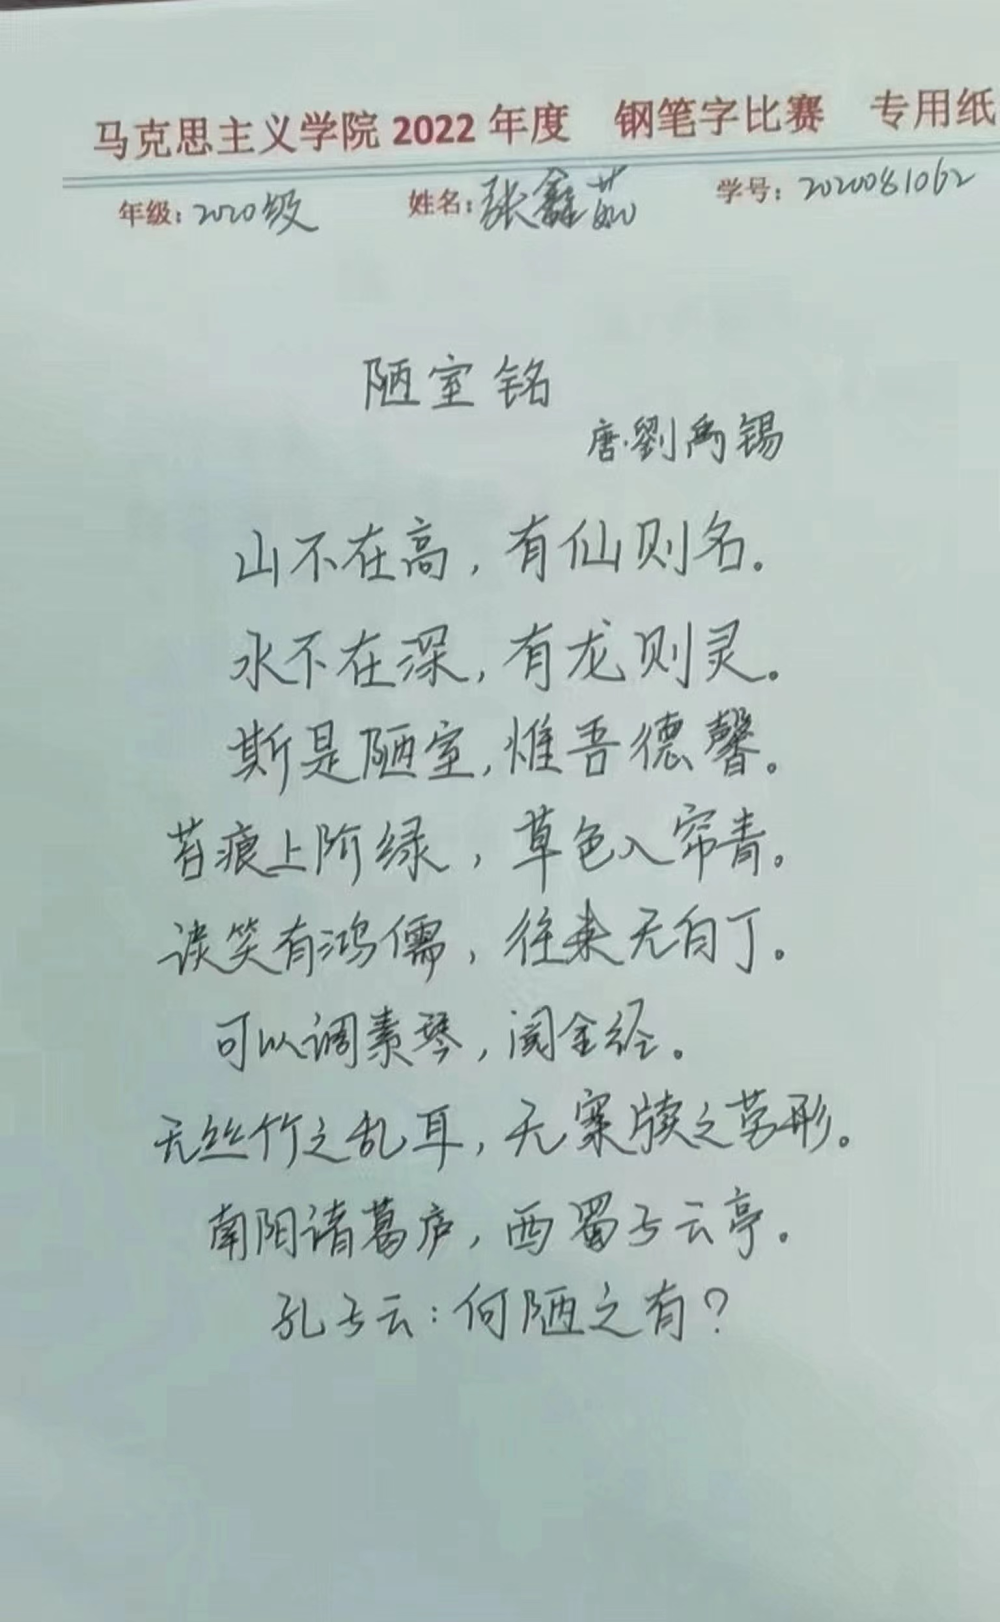 马克思主义学院2022年度 钢笔字比赛 专用纸
年级:2020级 姓名:张鑫茹 学号:2020081062
陋室铭
唐·劉禹锡
山不在高,有仙则名。
水不在深,有龙则灵。
斯是陋室,惟吾德馨。
苔痕上阶绿,草色入帘青。
谈笑有鸿儒,往来无白丁。
可以调素琴,阅金经。
无丝竹之乱耳,无案牍之劳形。
南阳诸葛庐,西蜀子云亭。
孔子云:何陋之有?